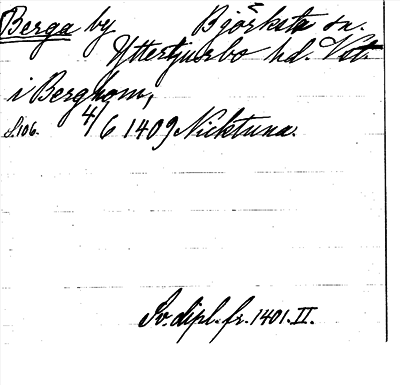 Berga by Björksta sn.
Yttertjurbo hd. Vst.
i Berghom,
S.106. 4/6 1409 Nicktuna.
Sv. dipl. fr. 1401. II.